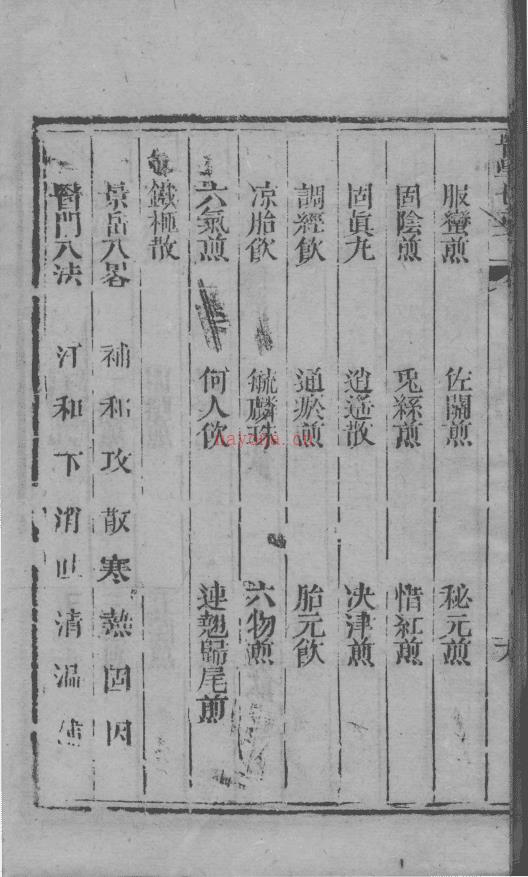 服蠻煎 佐關煎 秘元煎
固陰煎 兎絲煎 惜紅煎
固眞丸 逍遥散 决津煎
調經飲 通瘀煎 胎元飲
凉胎飲 毓麟珠 六物煎
六氣煎 何人飲 連翹歸尾煎
鐵槌散
景岳八畧 補和攻散寒熱固因
醫門八法 汗和下消吐清温補